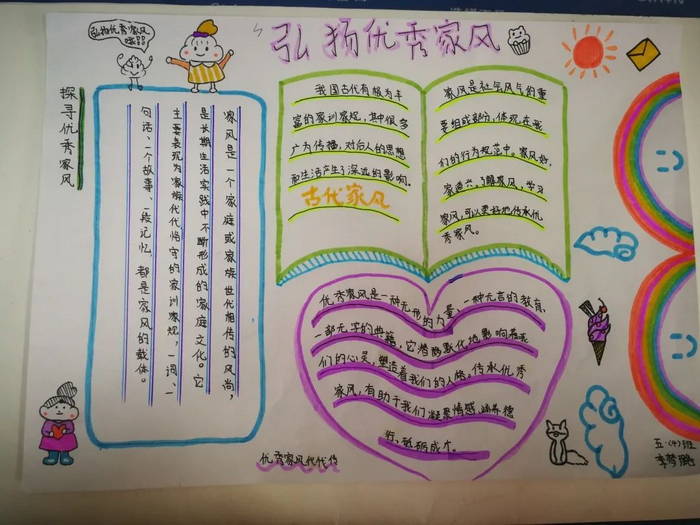 弘扬优秀家风
弘扬优秀家风
探寻优秀家风
家风是一个家庭或家族世代相传的风尚，
是长期生活实践中不断形成的家庭文化。它
主要表现为家族代代恪守的家训家规，一词、一
句话、一个故事、一段记忆，都是家风的载体。
我国古代有极为丰
富的家训家规，其中很多
广为传播，对后人的思想
和生活产生了深远的影响。
古代家风
家风是社会风气的重
要组成部分，体现在我
们的行为规范中。家风好，
家道兴，了解家风，学习
家风，可以更好地传承优
秀家风。
优秀家风是一种无形的力量、一种无言的教育、
一部无字的典籍，它潜移默化地影响着我
们的心灵，塑造着我们的人格。传承优秀
家风，有助于我们凝聚情感、涵养德
行、砥砺成才。
优秀家风代代传
五·(4)班
李梦